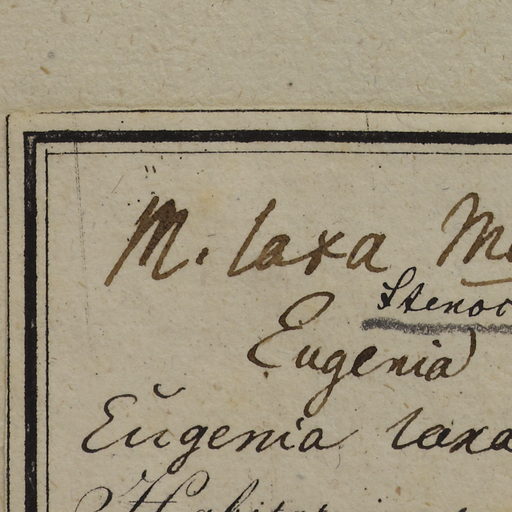 M. laxa
Stenoc
Eugenia
Eugenia laxa
Habitat